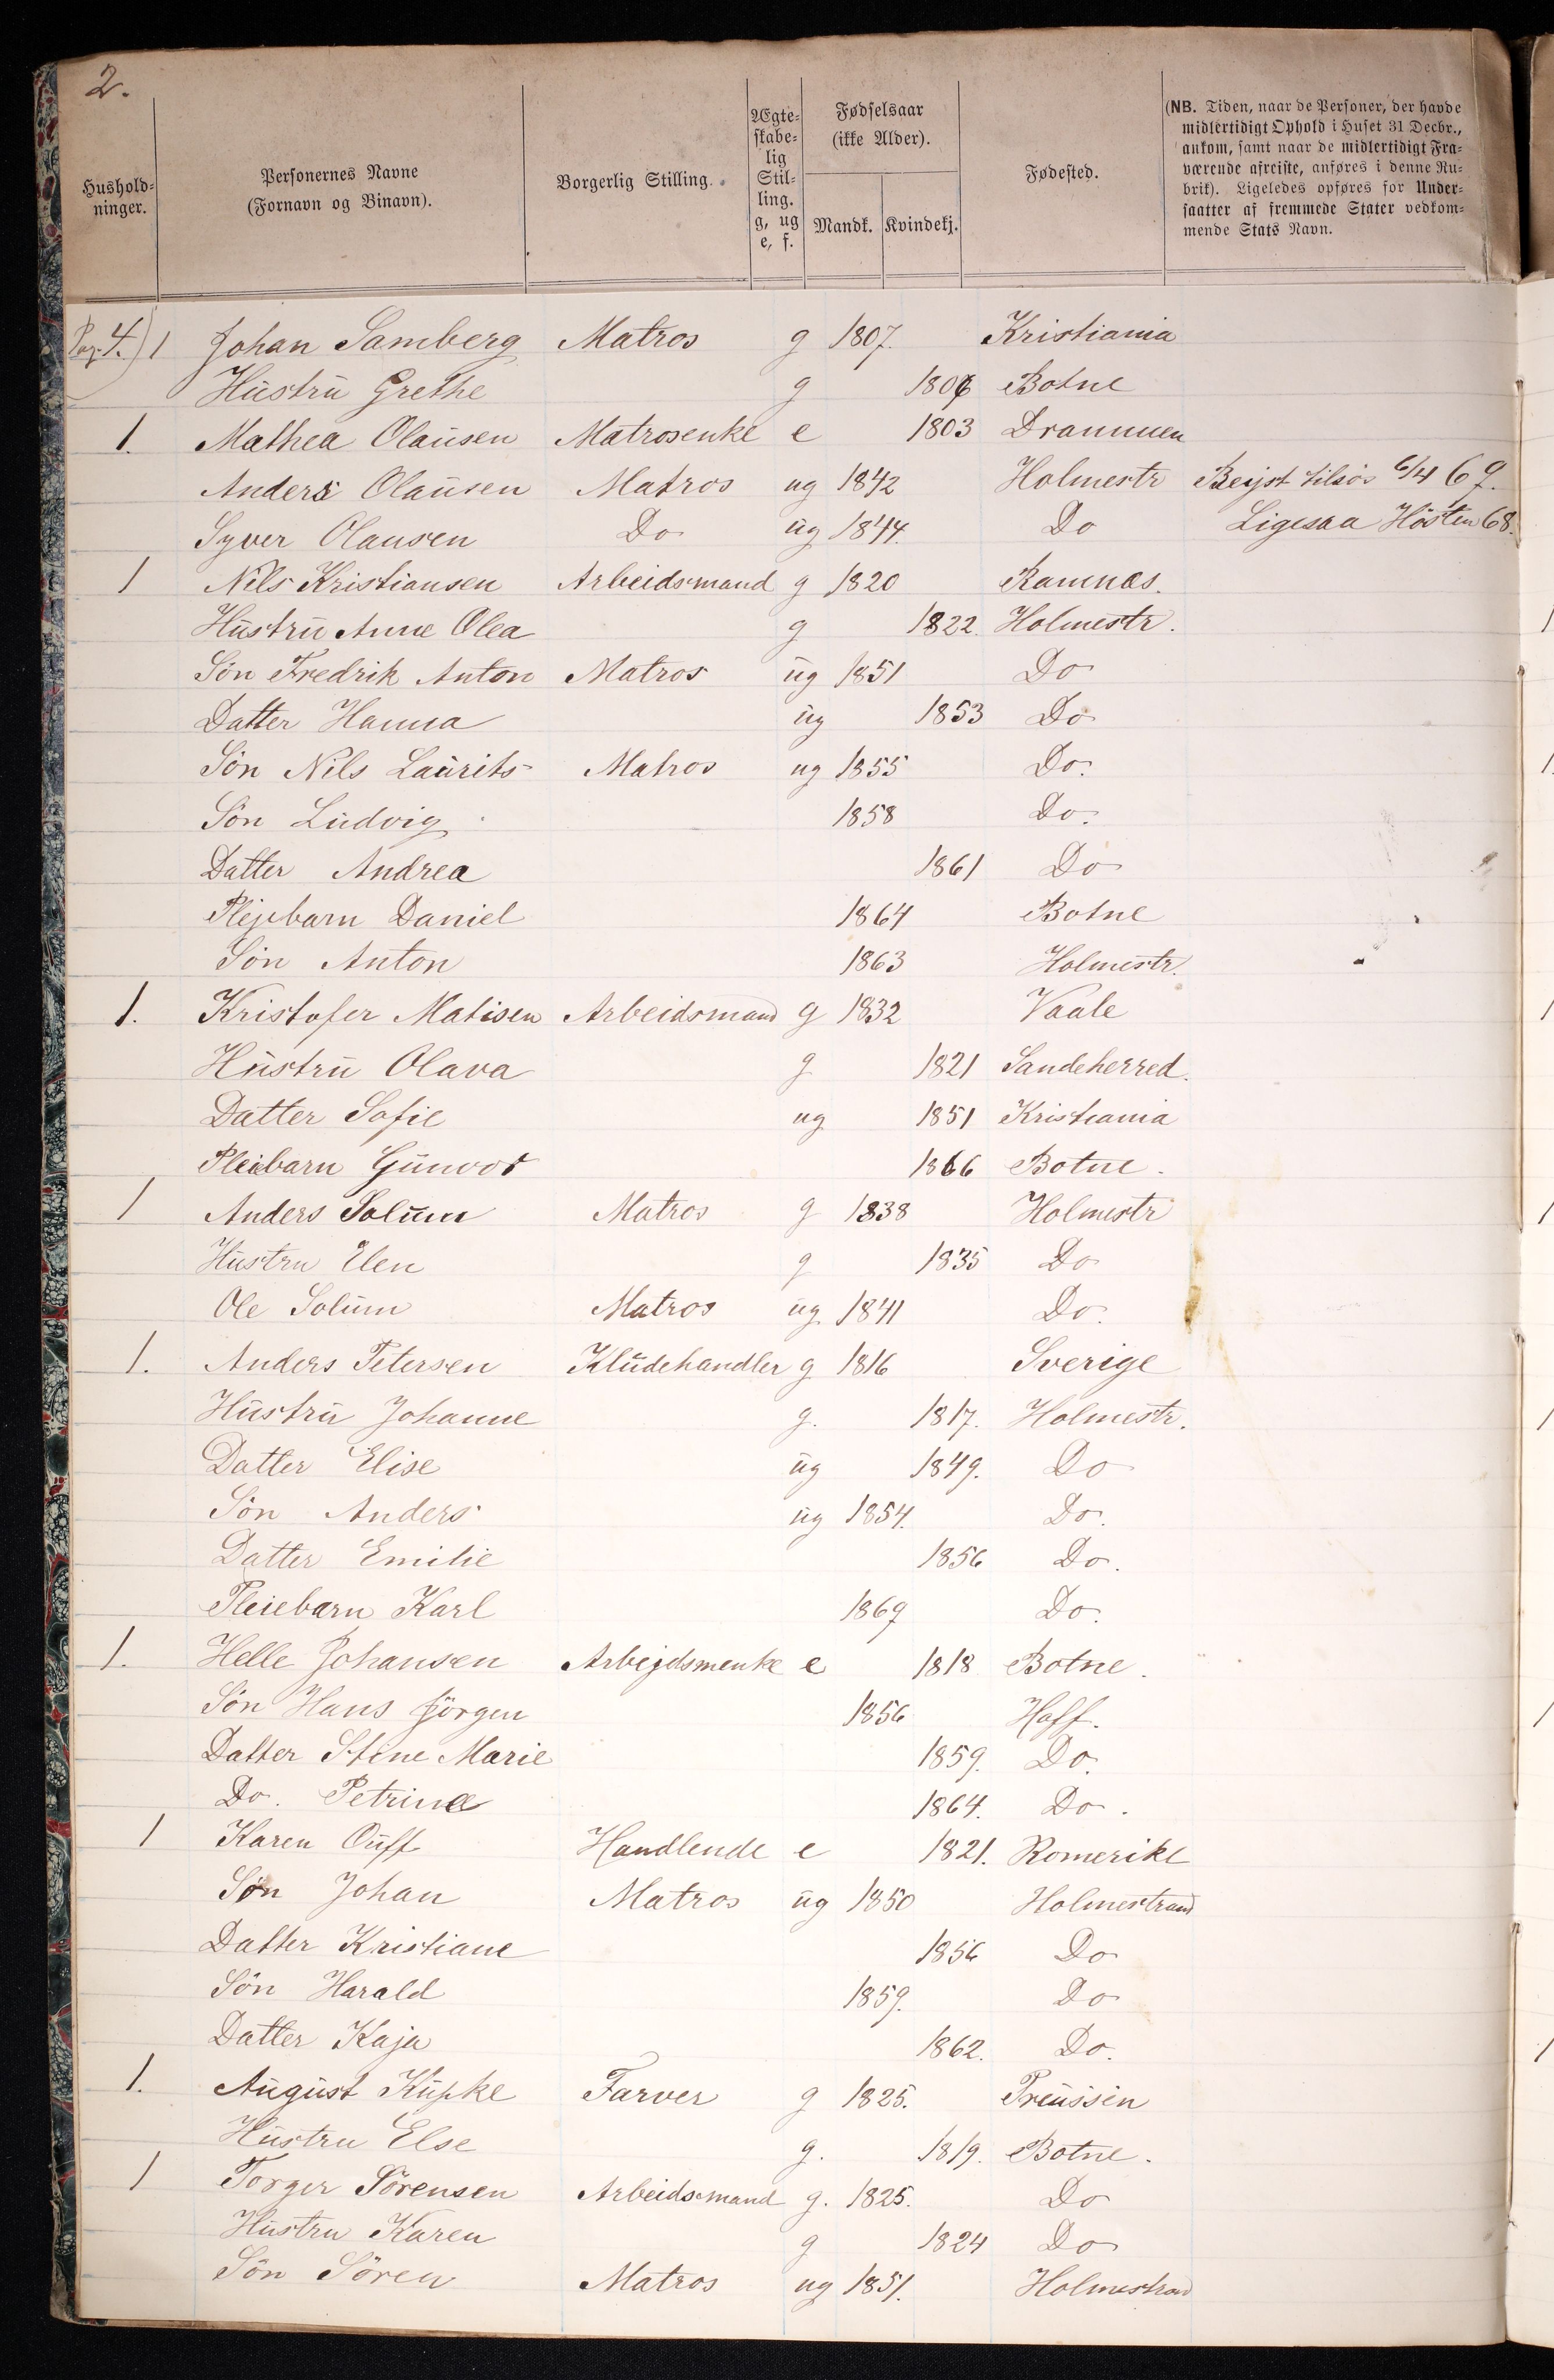 2.
Hushold-
ninger.
Personernes Navne
(Fornavn og Binavn).
Borgerlig Stilling.
Ægte-
skabe-
lig
Stil-
ling.
g, ug
e, f.
Fødselsaar
(ikke Alder).
Mandk. Kvindekj.
Fødested.
(NB. Tiden, naar de Personer, der havde
midlertidigt Ophold i Huset 31 Decbr.,
ankom, samt naar de midlertidigt Fra-
værende afreiste, anføres i denne Ru-
brik). Ligeledes opføres for Under-
saatter af fremmede Stater vedkom-
mende Stats Navn.
Pag. 4.) 1 Johan Samberg Matros g 1807. Kristiania
Hustru Grethe g 1806 Botne
1. Mathea Olausen Matrosenke e 1803 Drammen
Anders Olausen Matros ug 1842 Holmestr Rejst tilsös 6/4 69.
Syver Olausen Do ug 1844. Do Ligesaa Hösten 68.
1 Nils Kristiansen Arbeidsmand g 1820 Ramnes.
Hustru Anne Olea g 1822. Holmestr.
Sön Fredrik Anton Matros ug 1851 Do
Datter Hanna ug 1853 Do
Sön Nils Laurits Matros ug 1855 Do.
Sön Ludvig 1858 Do.
Datter Andrea 1861 Do
Plejebarn Daniel 1864 Botne
Sön Anton 1863 Holmestr.
1. Kristofer Matisen Arbeidsmand g 1832 Vaale
Hustru Olava g 1821 Sandeherred.
Datter Sofie ug 1851 Kristiania
Pleiebarn Gunvor 1866 Botne.
1 Anders Solum Matros g 1838 Holmestr
Hustru Elen g 1835 Do
Ole Solum Matros ug 1841 Do.
1. Anders Petersen Kludehandler g 1816 Sverige
Hustru Johanne g. 1817. Holmestr.
Datter Elise ug 1849. Do
Sön Anders ug 1854. Do.
Datter Emilie 1856 Do.
Pleiebarn Karl 1869 Do.
1. Helle Johansen Arbejdsmenke e 1818 Botne.
Sön Hans Jörgen 1856 Hoff.
Datter Stine Marie 1859. Do.
Do. Petrine 1864. Do.
1 Karen Ouff Handlende e 1821. Romerike
Sön Johan Matros ug 1850 Holmestrand
Datter Kristiane 1856 Do
Sön Harald 1859. Do
Datter Kaja 1862. Do.
1. August Kupke Farver g 1825. Preussen
Hustru Else g. 1819. Botne.
1 Torger Sörensen Arbeidsmand g. 1825. Do
Hustru Karen g 1824 Do
Sön Sören Matros ug 1851. Holmestrand